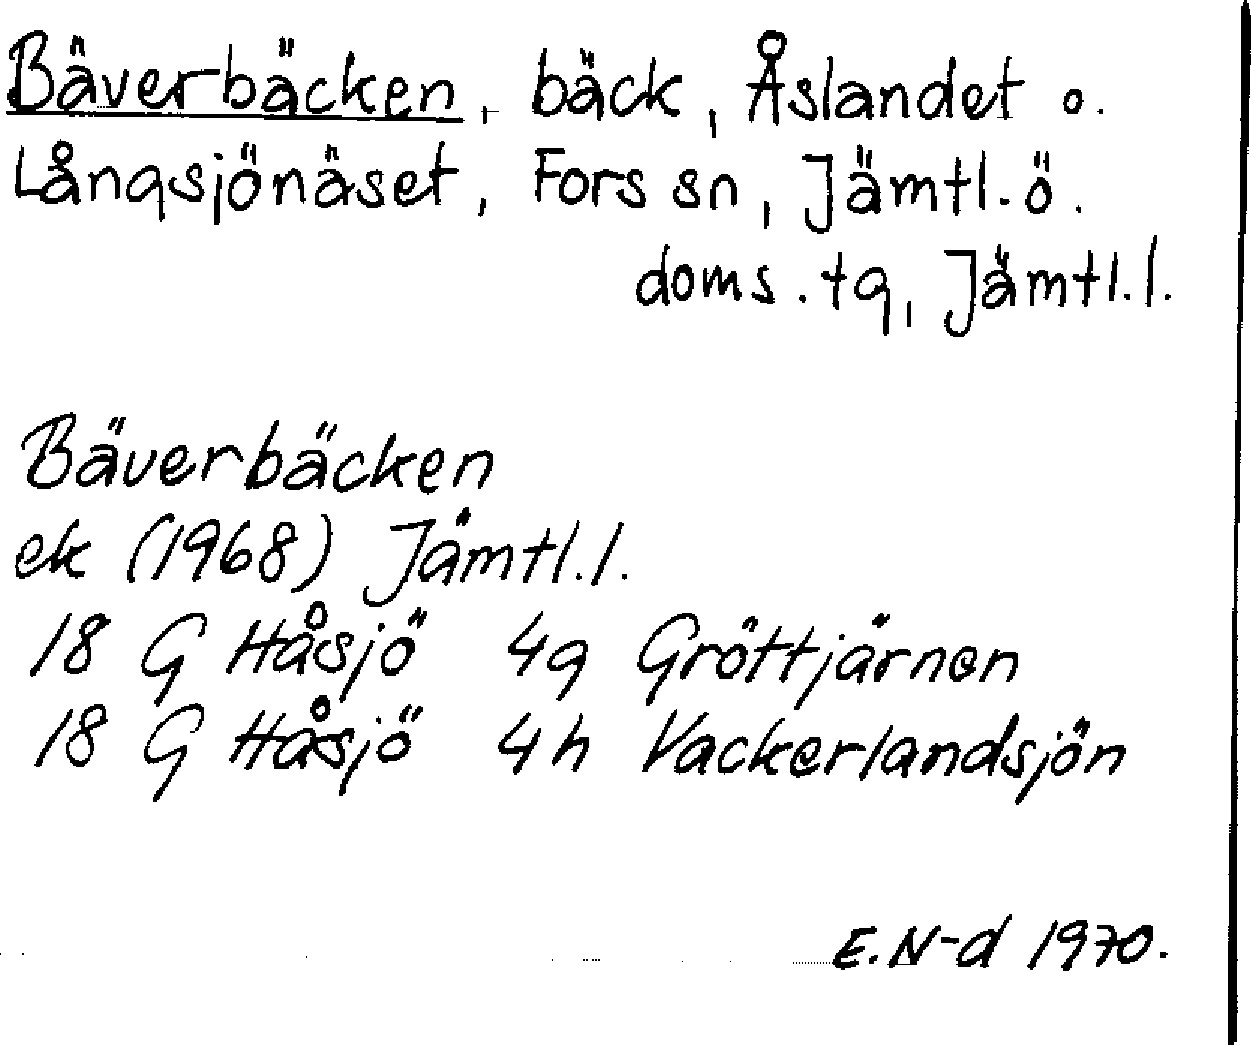 Bäverbäcken, bäck, Åslandet o.
Långsjönäset, Fors sn, Jämtl. ö.
doms. tg, Jämtl. l.
Bäverbäcken
ek (1968) Jämtl. l.
18 G Håsjö 4g Gröttjärnen
18 G Håsjö 4h Vackerlandsjön
E. N-d 1970.